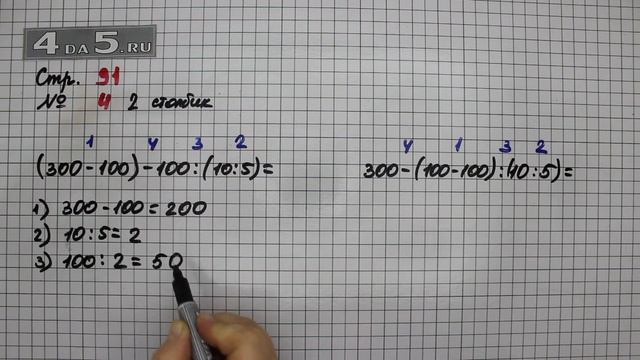 4 DA 5.RU
Стр. 91
№ 4 2 столбик
1 4 3 2
(300-100)-100:(10:5)=
4 1 3 2
300-(100-100):(10:5)=
1) 300-100=200
2) 10:5=2
3) 100:2=50